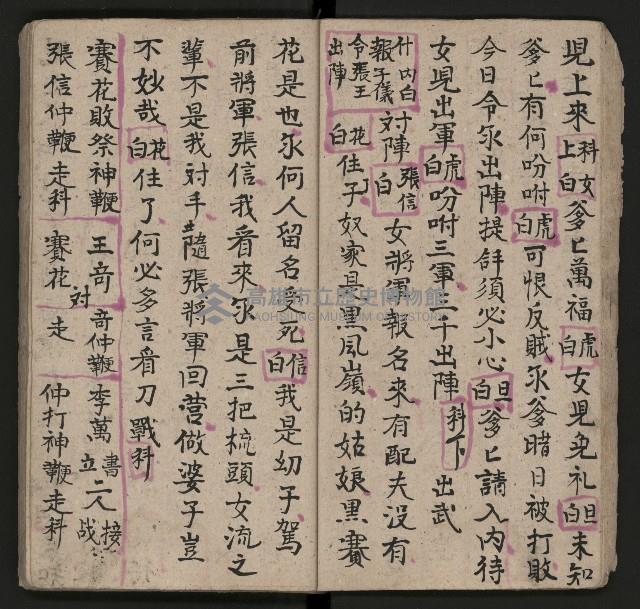 児上來科上女白爹匕萬福虎白女児免礼旦白未知
爹匕有何吩咐虎白可恨反賊尔爹暗日被打敗
今日令尔出陣提防須必小心旦白爹匕請入內待
女児出軍虎白吩咐三軍二十出陣科下出武
什內白報子儀令張王出陣対陣張信白女將軍報名來有配夫沒有
花白住子奴家是黑風嶺的姑娘黑賽
花是也尔何人留名受死信白我是幼子駕
前將軍張信我看來尔是三把梳頭女流之
輩不是我対手隨張將軍回营做婆子豈
不妙哉花白住了何必多言看刀戰科
賽花敗祭神鞭 王奇対奇仲鞭 李萬書立二人接战
張信仲鞭走科 賽花走 仲打神鞭走科
高雄市立歷史博物館
KAOHSIUNG MUSEUM OF HISTORY